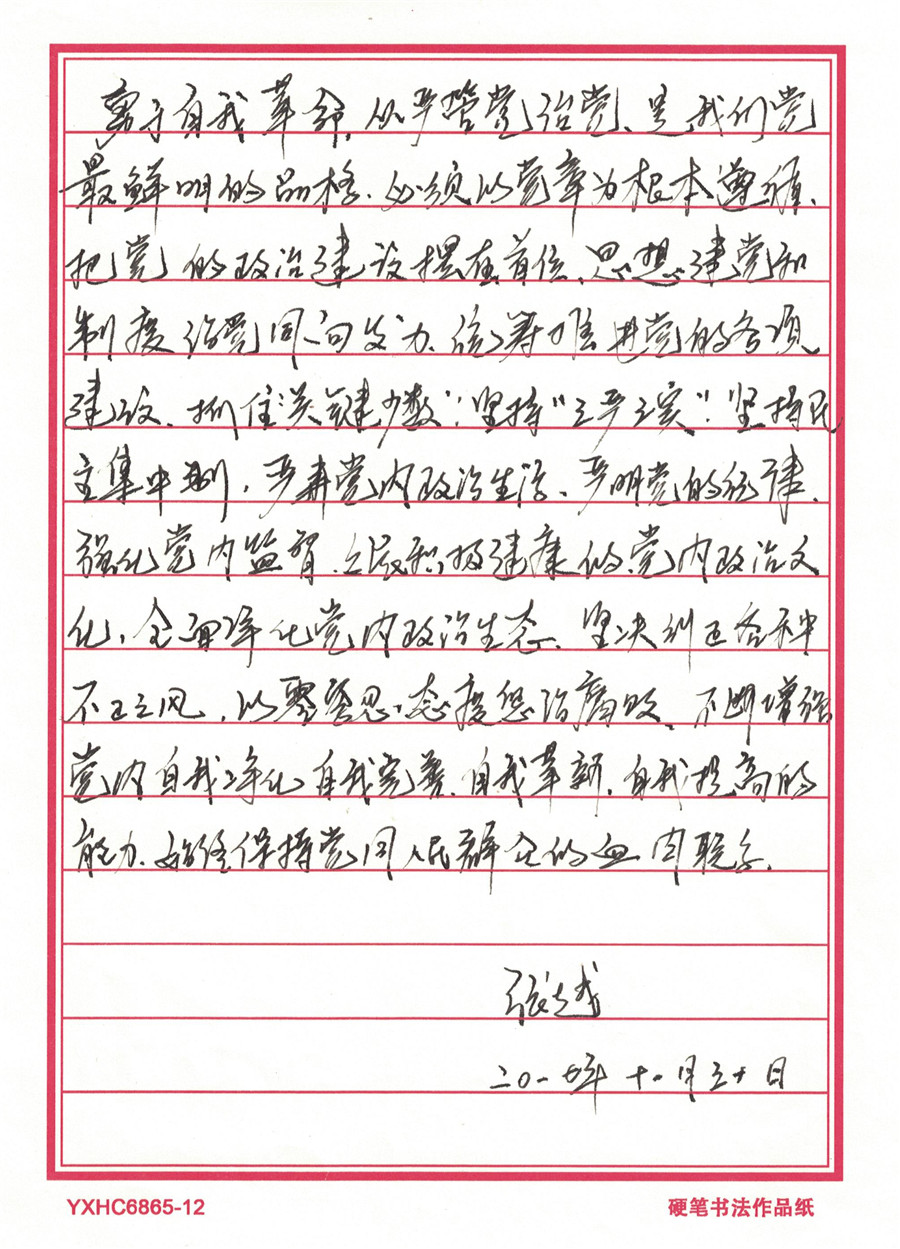 勇于自我革命,从严管党治党、是我们党
最鲜明的品格.必须以党章为根本遵循、
把党的政治建设摆在首位、思想建党和
制度治党同向发力、统筹推进党的各项
建设、抓住关键少数“坚持“三严三实”.坚持民
主集中制,严肃党内政治生活、严明党的纪律、
强化党内监督.发展积极健康的党内政治文
化,全面净化党内政治生态、坚决纠正各种
不正之风,以零容忍态度惩治腐败、不断增强
党内自我净化自我完善、自我革新.自我提高的
能力.始终保持党同人民群众的血肉联系.
二〇一七年十一月三十日
YXHC6865-12 硬笔书法作品纸